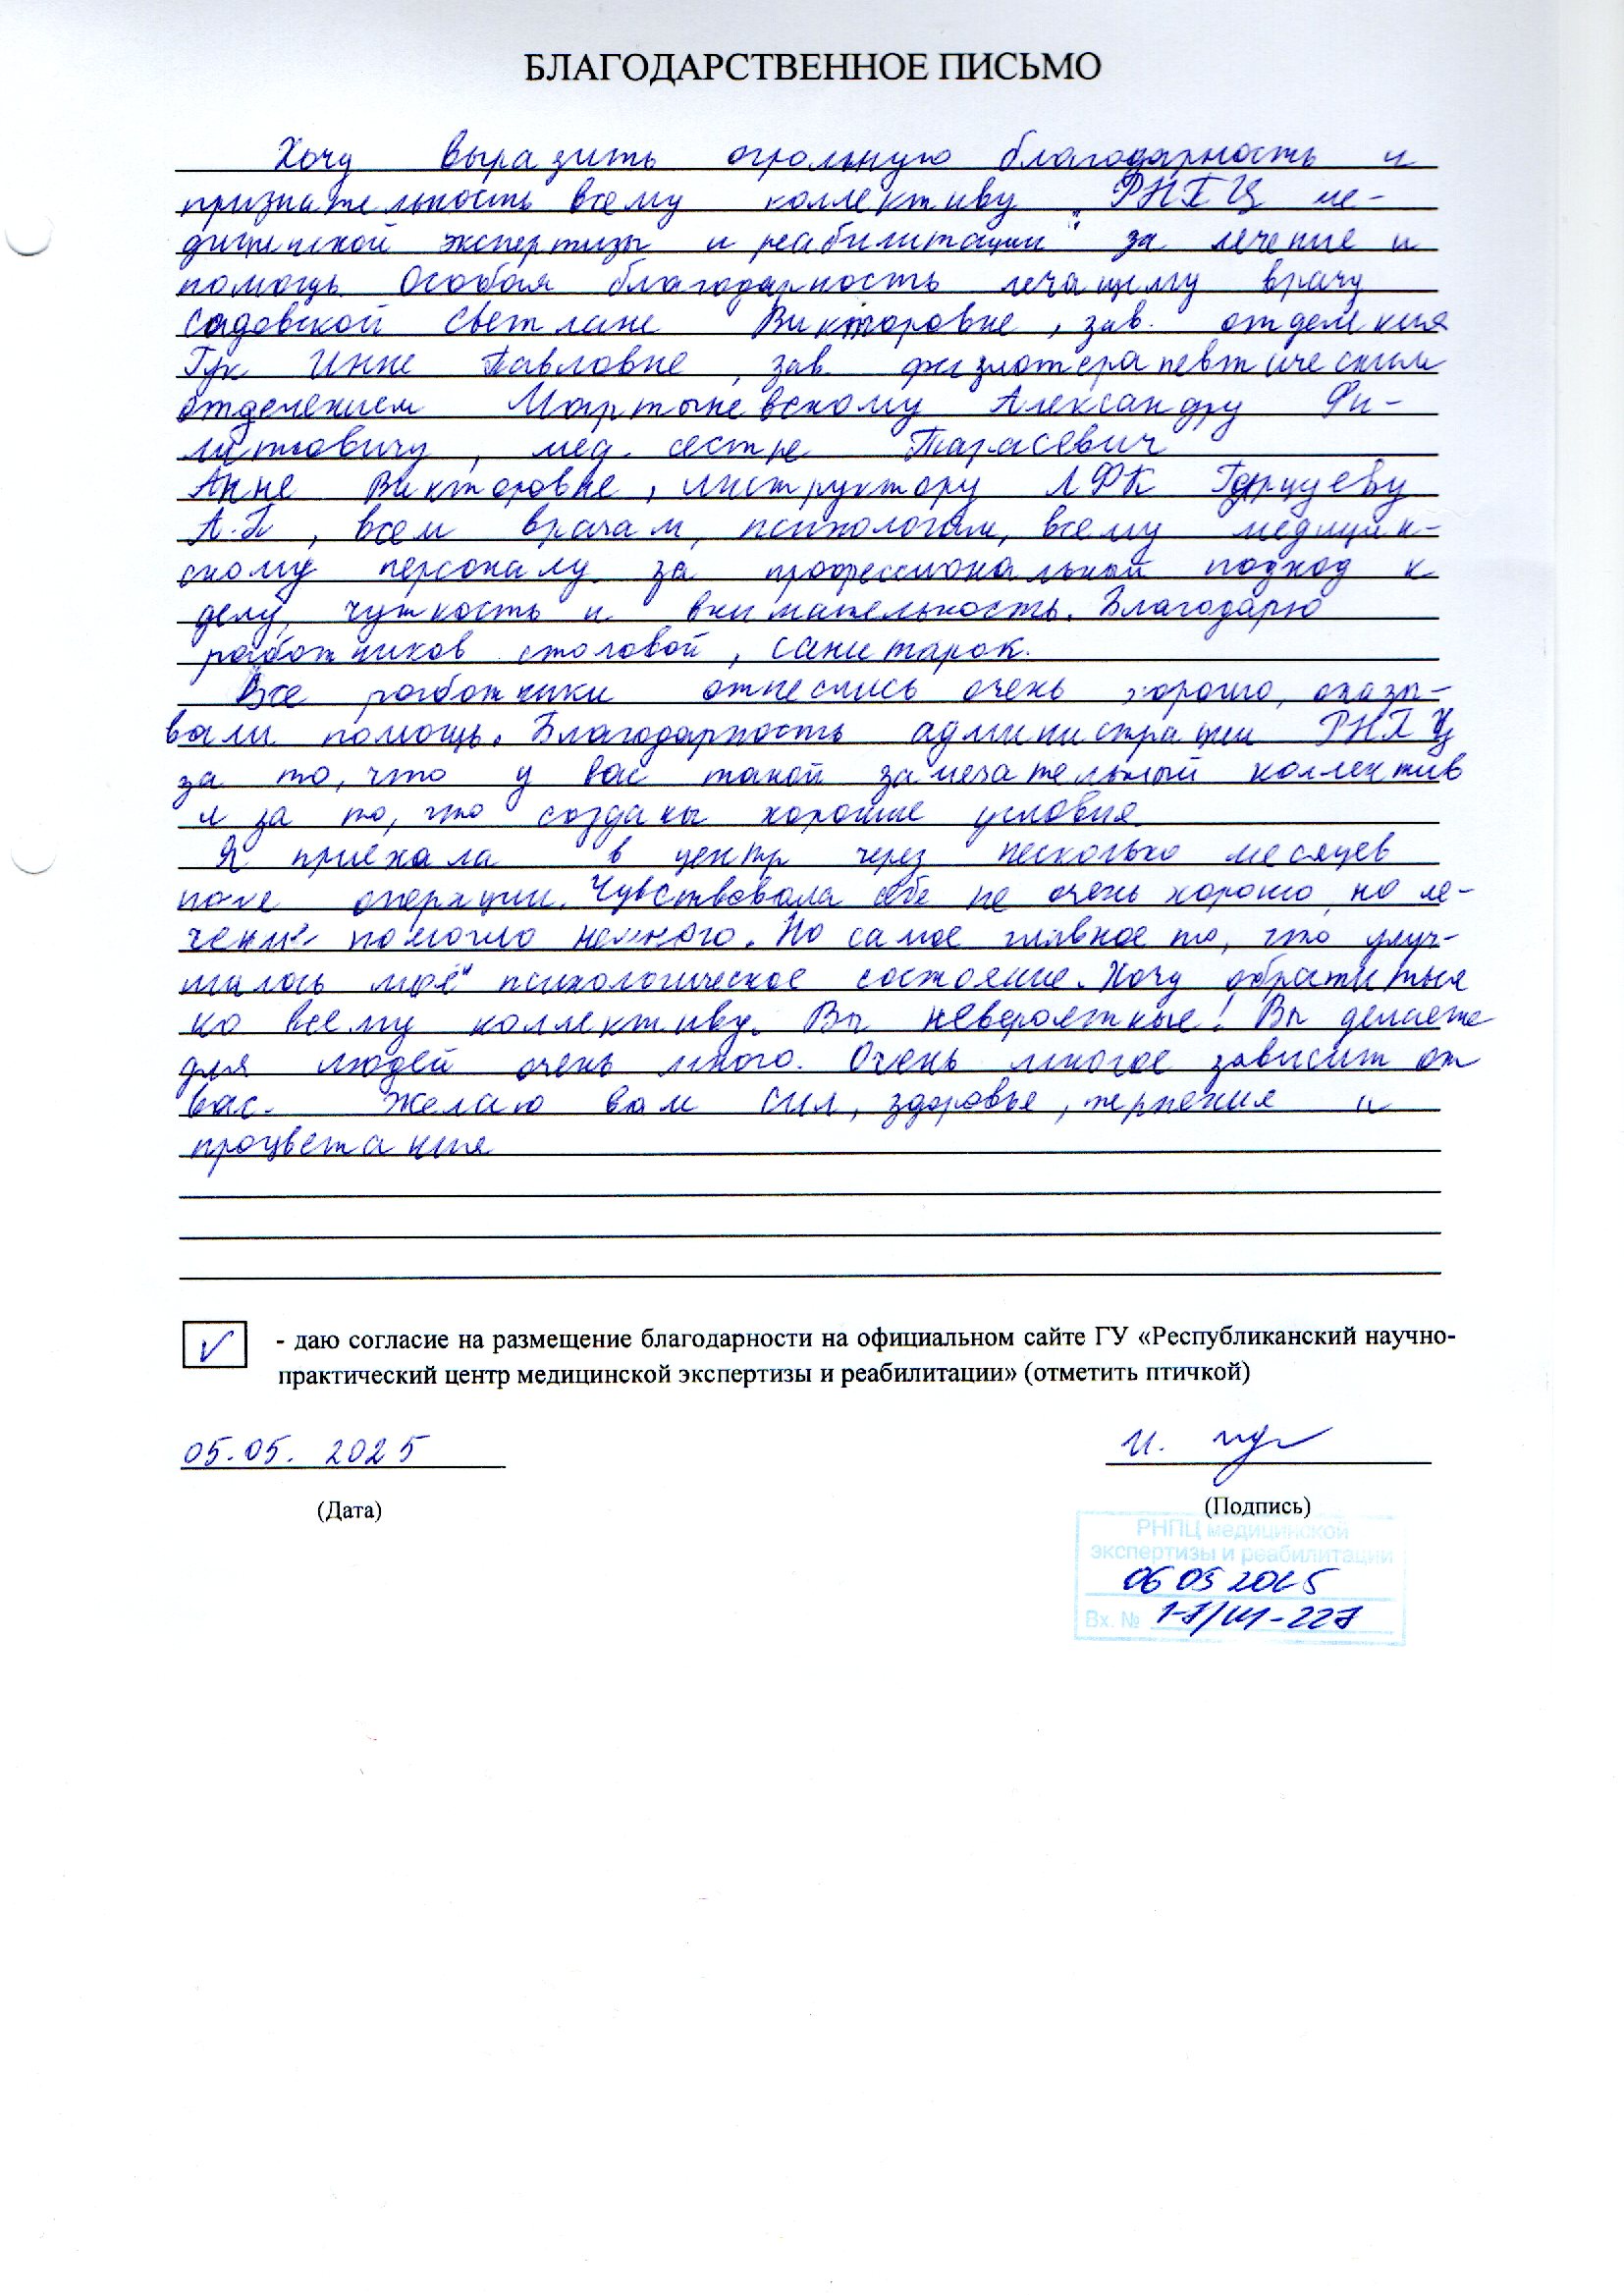 БЛАГОДАРСТВЕННОЕ ПИСЬМО
Хочу выразить огромную благодарность и
признательность всему коллективу "РНПЦ ме-
дицинской экспертизы и реабилитации" за лечение и
помощь. Особая благодарность лечащему врачу
Садовской Светлане Викторовне, зав. отделения
Гук Инне Павловне, зав. физиотерапевтическим
отделением Мартыневскому Александру Фи-
липповичу, мед. сестре Тарасевич
Анне Викторовне, инструктору ЛФК
А.П, всем врачам, психологам, всему медицин-
скому персоналу за профессиональный подход к
делу, чуткость и внимательность. Благодарю
работников столовой, санитарок.
Все работники отнеслись очень хорошо, оказы-
вали помощь. Благодарность администрации РНПЦ
за то, что у вас такой замечательный коллектив
и за то, что созданы хорошие условия
Я приехала в центр через несколько месяцев
после операции. Чувствовала себя не очень хорошо, но ле-
чение помогло немного. Но самое главное то, что улуч-
шилось моё психологическое состояние. Хочу обратиться
ко всему коллективу. Вы невероятные! Вы делаете
для людей очень много. Очень многое зависит от
вас. Желаю вам сил, здоровья, терпения и
процветания
- даю согласие на размещение благодарности на официальном сайте ГУ «Республиканский научно-
практический центр медицинской экспертизы и реабилитации» (отметить птичкой)
05.05. 2025
(Дата)
(Подпись)
РНПЦ медицинской
экспертизы и реабилитации
06 05 2025
Вх. №